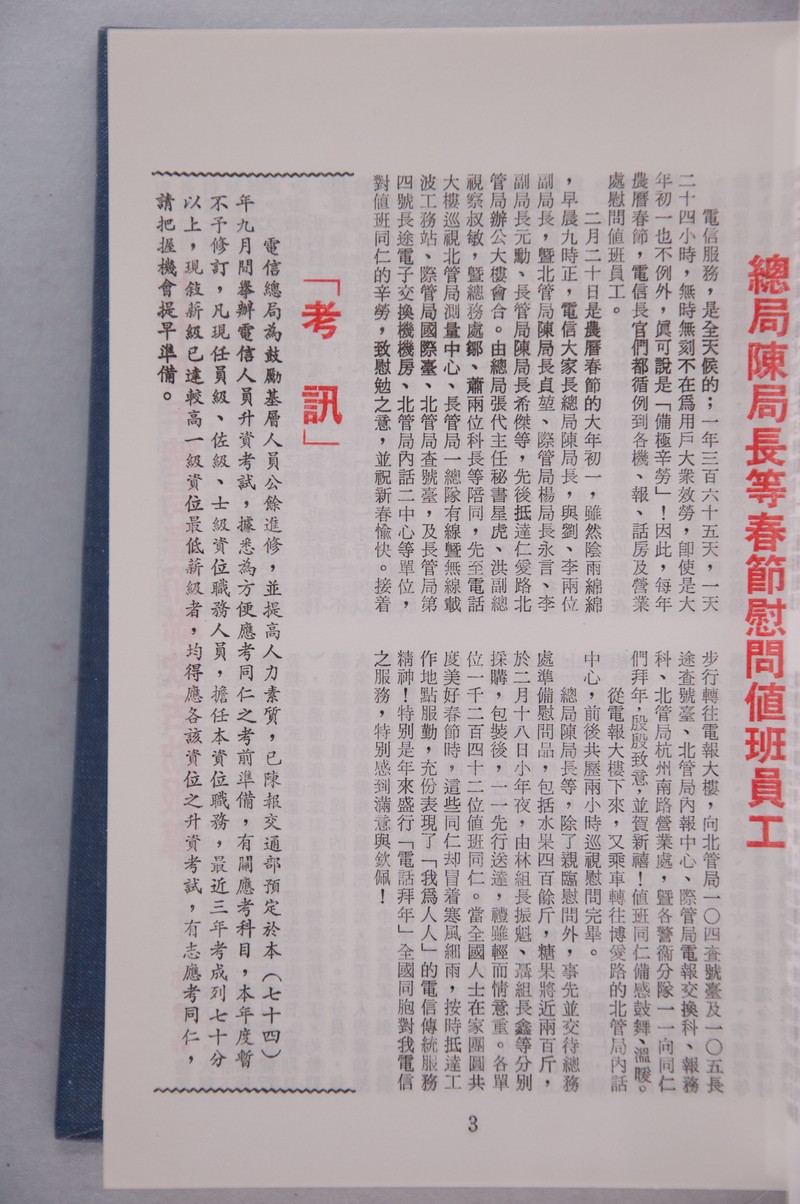 總局陳局長等春節慰問值班員工
電信服務，是全天候的；一年三百六十五天，一天
二十四小時，無時無刻不在為用戶大衆效勞，即使是大
年初一也不例外，眞可說是「備極辛勞」！因此，每年
農曆春節，電信長官們都循例到各機、報、話房及營業
處慰問值班員工。
二月二十日是農曆春節的大年初一，雖然陰雨綿綿
，早晨九時正，電信大家長總局陳局長，與劉、李兩位
副局長，暨北管局陳局長貞堃、際管局楊局長永言、李
副局長元勳、長管局陳局長希傑等，先後抵達仁愛路北
管局辦公大樓會合。由總局張代主任秘書星虎、洪副總
視察叔敏，暨總務處鄒、蕭兩位科長等陪同，先至電話
大樓巡視北管局測量中心、長管局一總隊有線暨無線載
波工務站、際管局國際臺、北管局查號臺，及長管局第
四號長途電子交換機機房、北管局內話二中心等單位，
對值班同仁的辛勞，致慰勉之意，並祝新春愉快。接着
步行轉往電報大樓，向北管局一〇四查號臺及一〇五長
途查號臺、北管局內報中心、際管局電報交換科、報務
科、北管局杭州南路營業處，暨各警衞分隊一一向同仁
們拜年，殷殷致意，並賀新禧！值班同仁備感鼓舞、溫暖。
從電報大樓下來，又乘車轉往博愛路的北管局內話
中心，前後共歷兩小時巡視慰問完畢。
總局陳局長等，除了親臨慰問外，事先並交待總務
處準備慰問品，包括水果四百餘斤，糖果將近兩百斤，
於二月十八日小年夜，由林組長振魁、聶組長鑫等分別
採購，包裝後，一一先行送達，禮雖輕而情意重。各單
位一千二百四十二位值班同仁。當全國人士在家團圓共
度美好春節時，這些同仁却冒着寒風細雨，按時抵達工
作地點服勤，充份表現了「我為人人」的電信傳統服務
精神！特別是年來盛行「電話拜年」全國同胞對我電信
之服務，特別感到滿意與欽佩！
「考訊」
電信總局為鼓勵基層人員公餘進修，並提高人力素質，已陳報交通部預定於本（七十四）
年九月間舉辦電信人員升資考試，據悉為方便應考同仁之考前準備，有關應考科目，本年度暫
不予修訂，凡現任員級、佐級、士級資位職務人員，擔任本資位職務，最近三年考成列七十分
以上，現敍薪級已達較高一級資位最低薪級者，均得應各該資位之升資考試，有志應考同仁，
請把握機會提早準備。
3